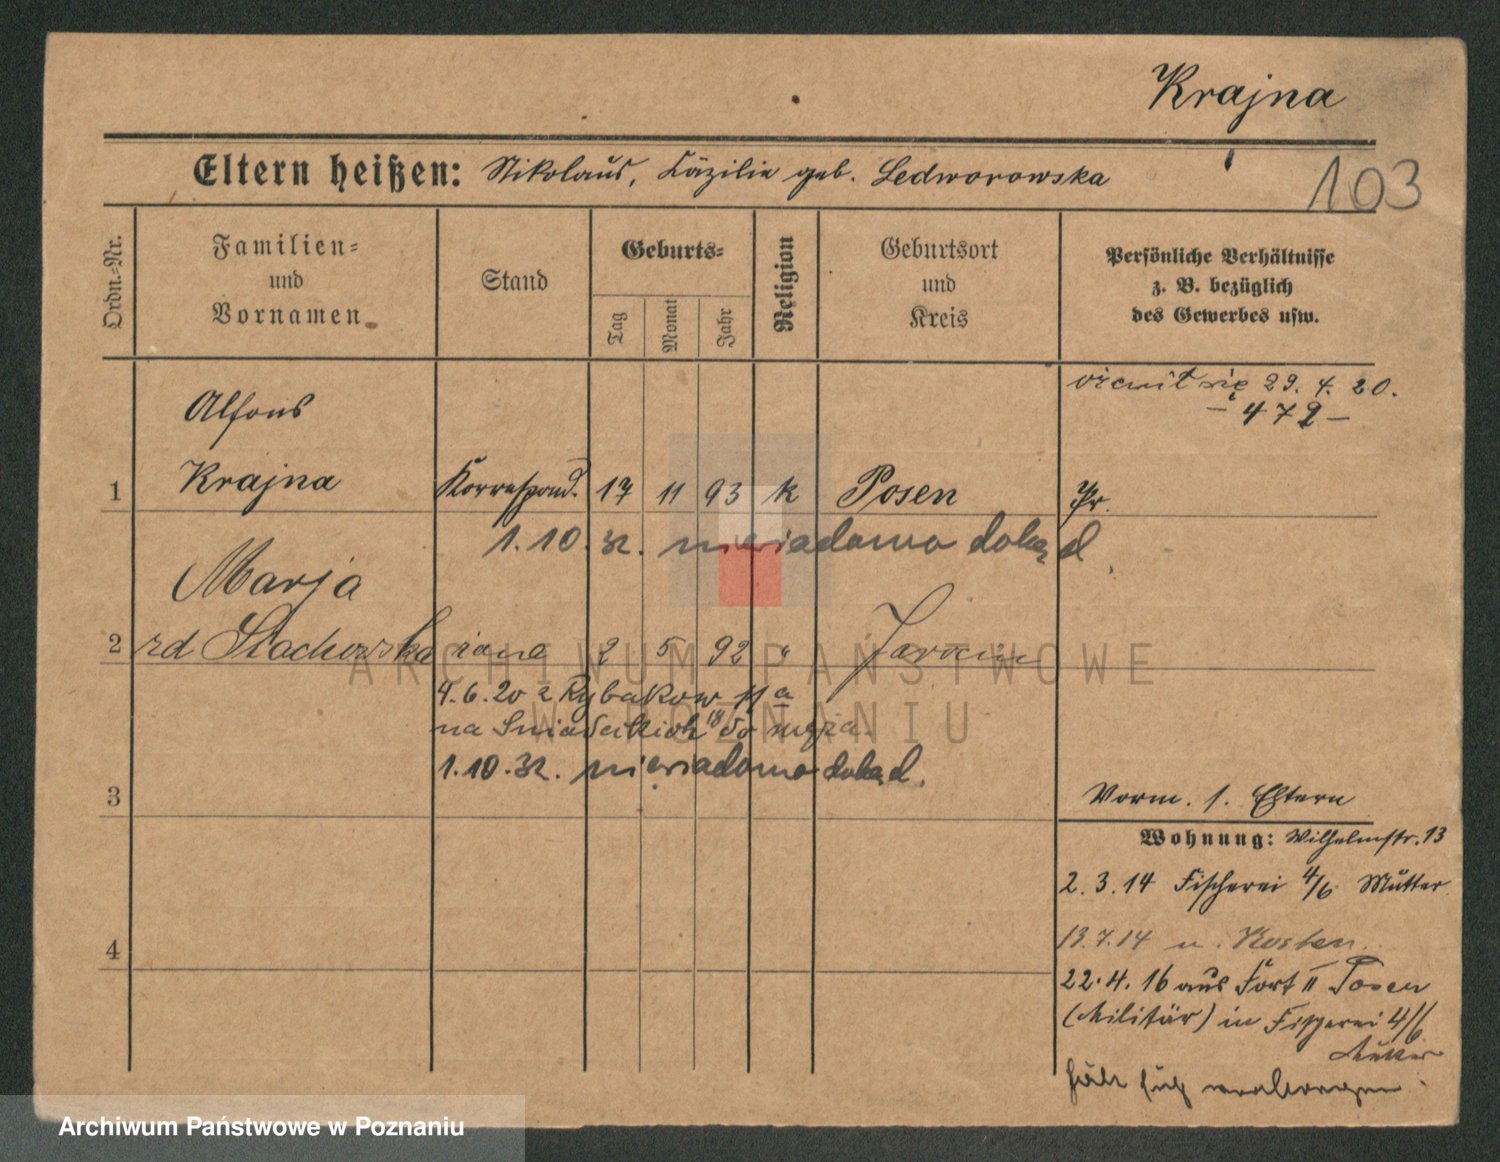 Krajna
103
Eltern heißen: Nikolaus, Cäzilie geb. Ledworowska
Ordn.-Nr.
Familien-
und
Vornamen
Stand
Geburts-
Tag
Monat
Jahr
Religion
Geburtsort
und
Kreis
Persönliche Verhältnisse
z. B. bezüglich
des Gewerbes usw.
29. 4. 20.
– 472 –
Alfons
1 Krajna Korrespond. 17 11 93 k Posen Pr.
1.10.32. niewiadomo dokąd
Marja
2 rd Stachowska 2 5 92 " Jarocin
4.6.20 z Rybakow 11 a
na Śniadeckich 18 do męża.
1.10.32. niewiadomo dokąd.
3
4
Vorm. s. Eltern
Wohnung: Wilhelmstr. 13
2. 3. 14 Fischerei 4/6 Mutter
13.7.14 n. Kosten
22.4.16 aus Fort II Posen
(Militär) in Fischerei 4/6
Mutter
hält sich
ARCHIWUM PAŃSTWOWE
W POZNANIU
Archiwum Państwowe w Poznaniu